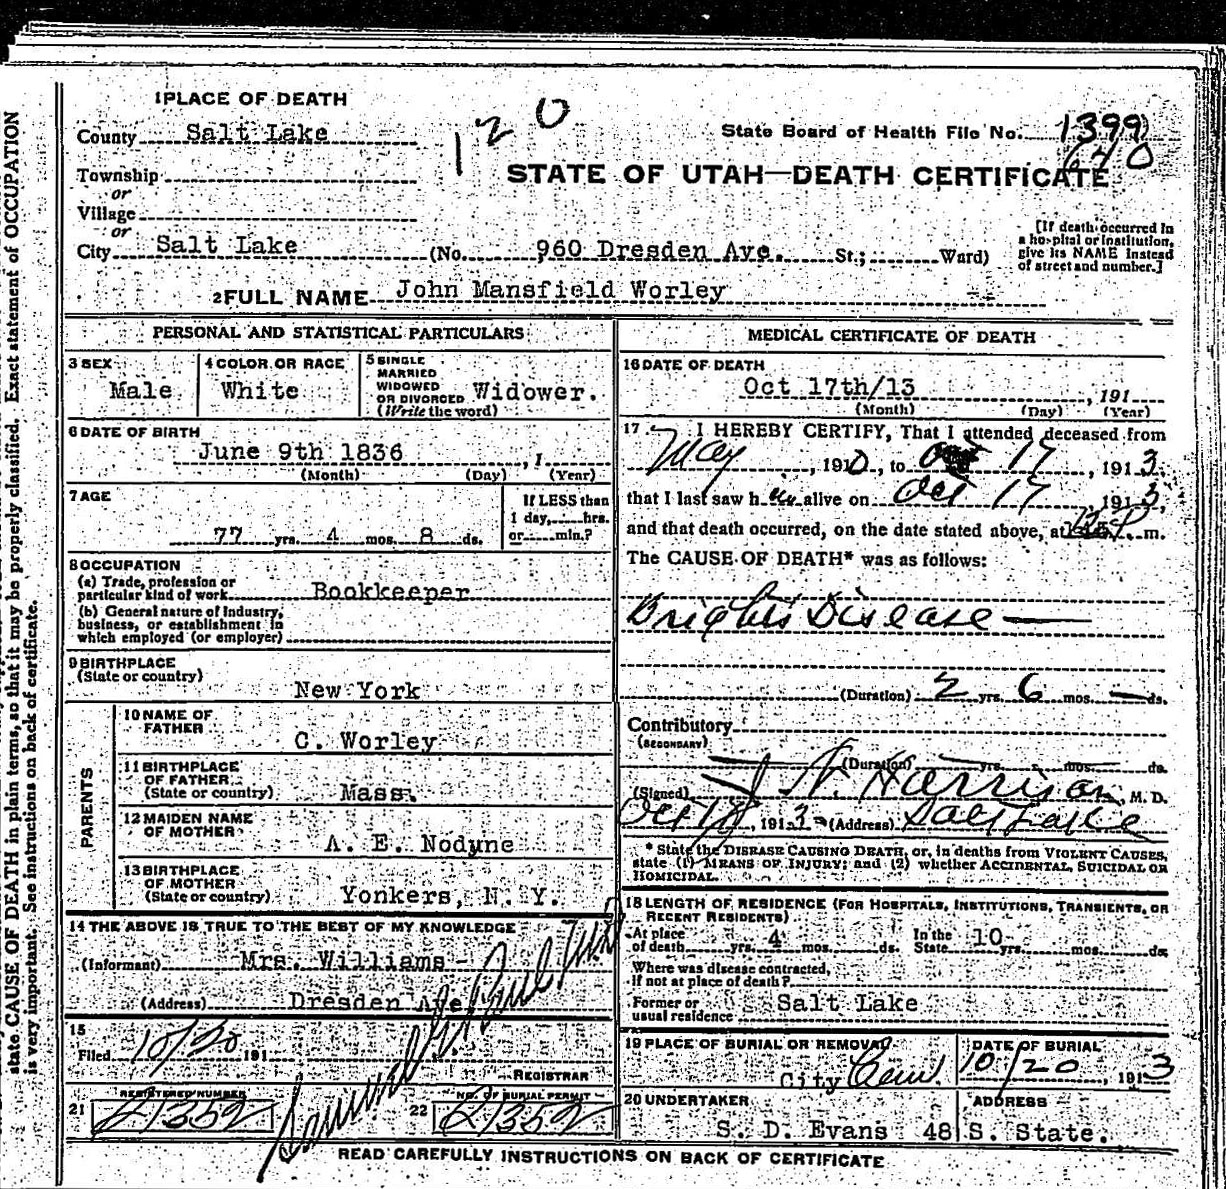 state CAUSE OF DEATH in plain terms, so that it may be properly classified. Exact statement of OCCUPATION
is very important. See instructions on back of certificate.
1 PLACE OF DEATH
County Salt Lake
120
State Board of Health File No. 1399
670
STATE OF UTAH—DEATH CERTIFICATE
Township
or
Village
or
City Salt Lake (No. 960 Dresden Ave. St.; Ward)
[If death occurred in
a hospital or institution,
give its NAME instead
of street and number.]
2 FULL NAME John Mansfield Worley
PERSONAL AND STATISTICAL PARTICULARS
3 SEX
Male
4 COLOR OR RACE
White
5 SINGLE
MARRIED
WIDOWED
OR DIVORCED
(Write the word)
Widower.
6 DATE OF BIRTH
June 9th 1836, 1
(Month) (Day) (Year)
7 AGE
77 yrs. 4 mos. 8 ds.
If LESS than
1 day, hrs.
or min.?
8 OCCUPATION
(a) Trade, profession or
particular kind of work Bookkeeper
(b) General nature of industry,
business, or establishment in
which employed (or employer)
9 BIRTHPLACE
(State or country)
New York
PARENTS
10 NAME OF
FATHER
C. Worley
11 BIRTHPLACE
OF FATHER
(State or country) Mass.
12 MAIDEN NAME
OF MOTHER
A. E. Nodyne
13 BIRTHPLACE
OF MOTHER
(State or country) Yonkers, N. Y.
14 THE ABOVE IS TRUE TO THE BEST OF MY KNOWLEDGE
(Informant) Mrs. Williams
(Address) Dresden Ave
15
Filed 10/20 191
REGISTRAR
21 REGISTERED NUMBER
22 NO. OF BURIAL PERMIT
MEDICAL CERTIFICATE OF DEATH
16 DATE OF DEATH
Oct 17th/13, 191
(Month) (Day) (Year)
17 I HEREBY CERTIFY, That I attended deceased from
May, 1910, to Oct 17, 1913
that I last saw him alive on Oct 17 1913,
and that death occurred, on the date stated above, at m.
The CAUSE OF DEATH* was as follows:
Brights Disease —
(Duration) 2 yrs. 6 mos. — ds.
Contributory
(SECONDARY)
(Duration) yrs. mos. ds.
(Signed) Harrison, M. D.
Oct 18, 1913 (Address) Salt Lake
* State the DISEASE CAUSING DEATH, or, in deaths from VIOLENT CAUSES,
state (1) MEANS OF INJURY; and (2) whether ACCIDENTAL, SUICIDAL OR
HOMICIDAL.
18 LENGTH OF RESIDENCE (FOR HOSPITALS, INSTITUTIONS, TRANSIENTS, OR
RECENT RESIDENTS)
At place
of death yrs. 4 mos. ds.
In the
State 10 yrs. mos. ds.
Where was disease contracted,
if not at place of death?
Former or
usual residence Salt Lake
19 PLACE OF BURIAL OR REMOVAL
City Cem.
DATE OF BURIAL
10/20, 1913
20 UNDERTAKER
S. D. Evans
ADDRESS
48 S. State.
READ CAREFULLY INSTRUCTIONS ON BACK OF CERTIFICATE